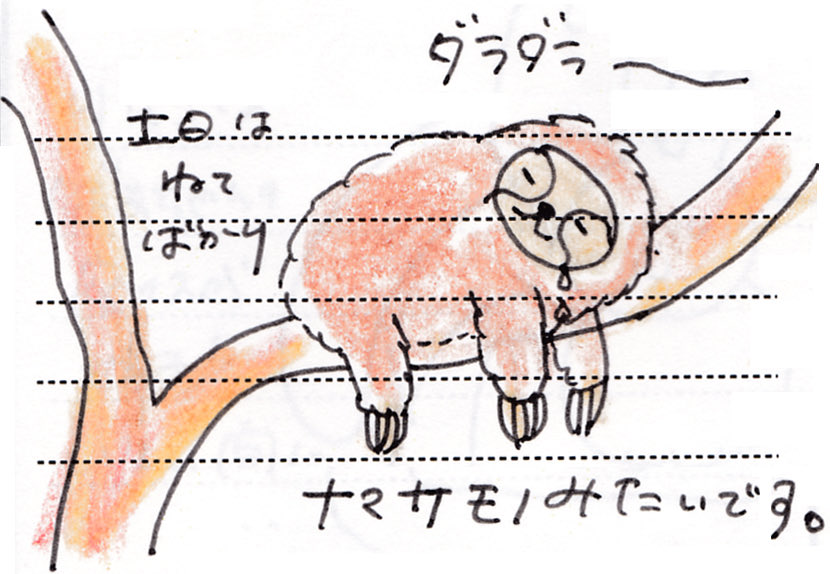 ダラダラ～
土日は
ねて
ばかり
ナマケモノみたいです。